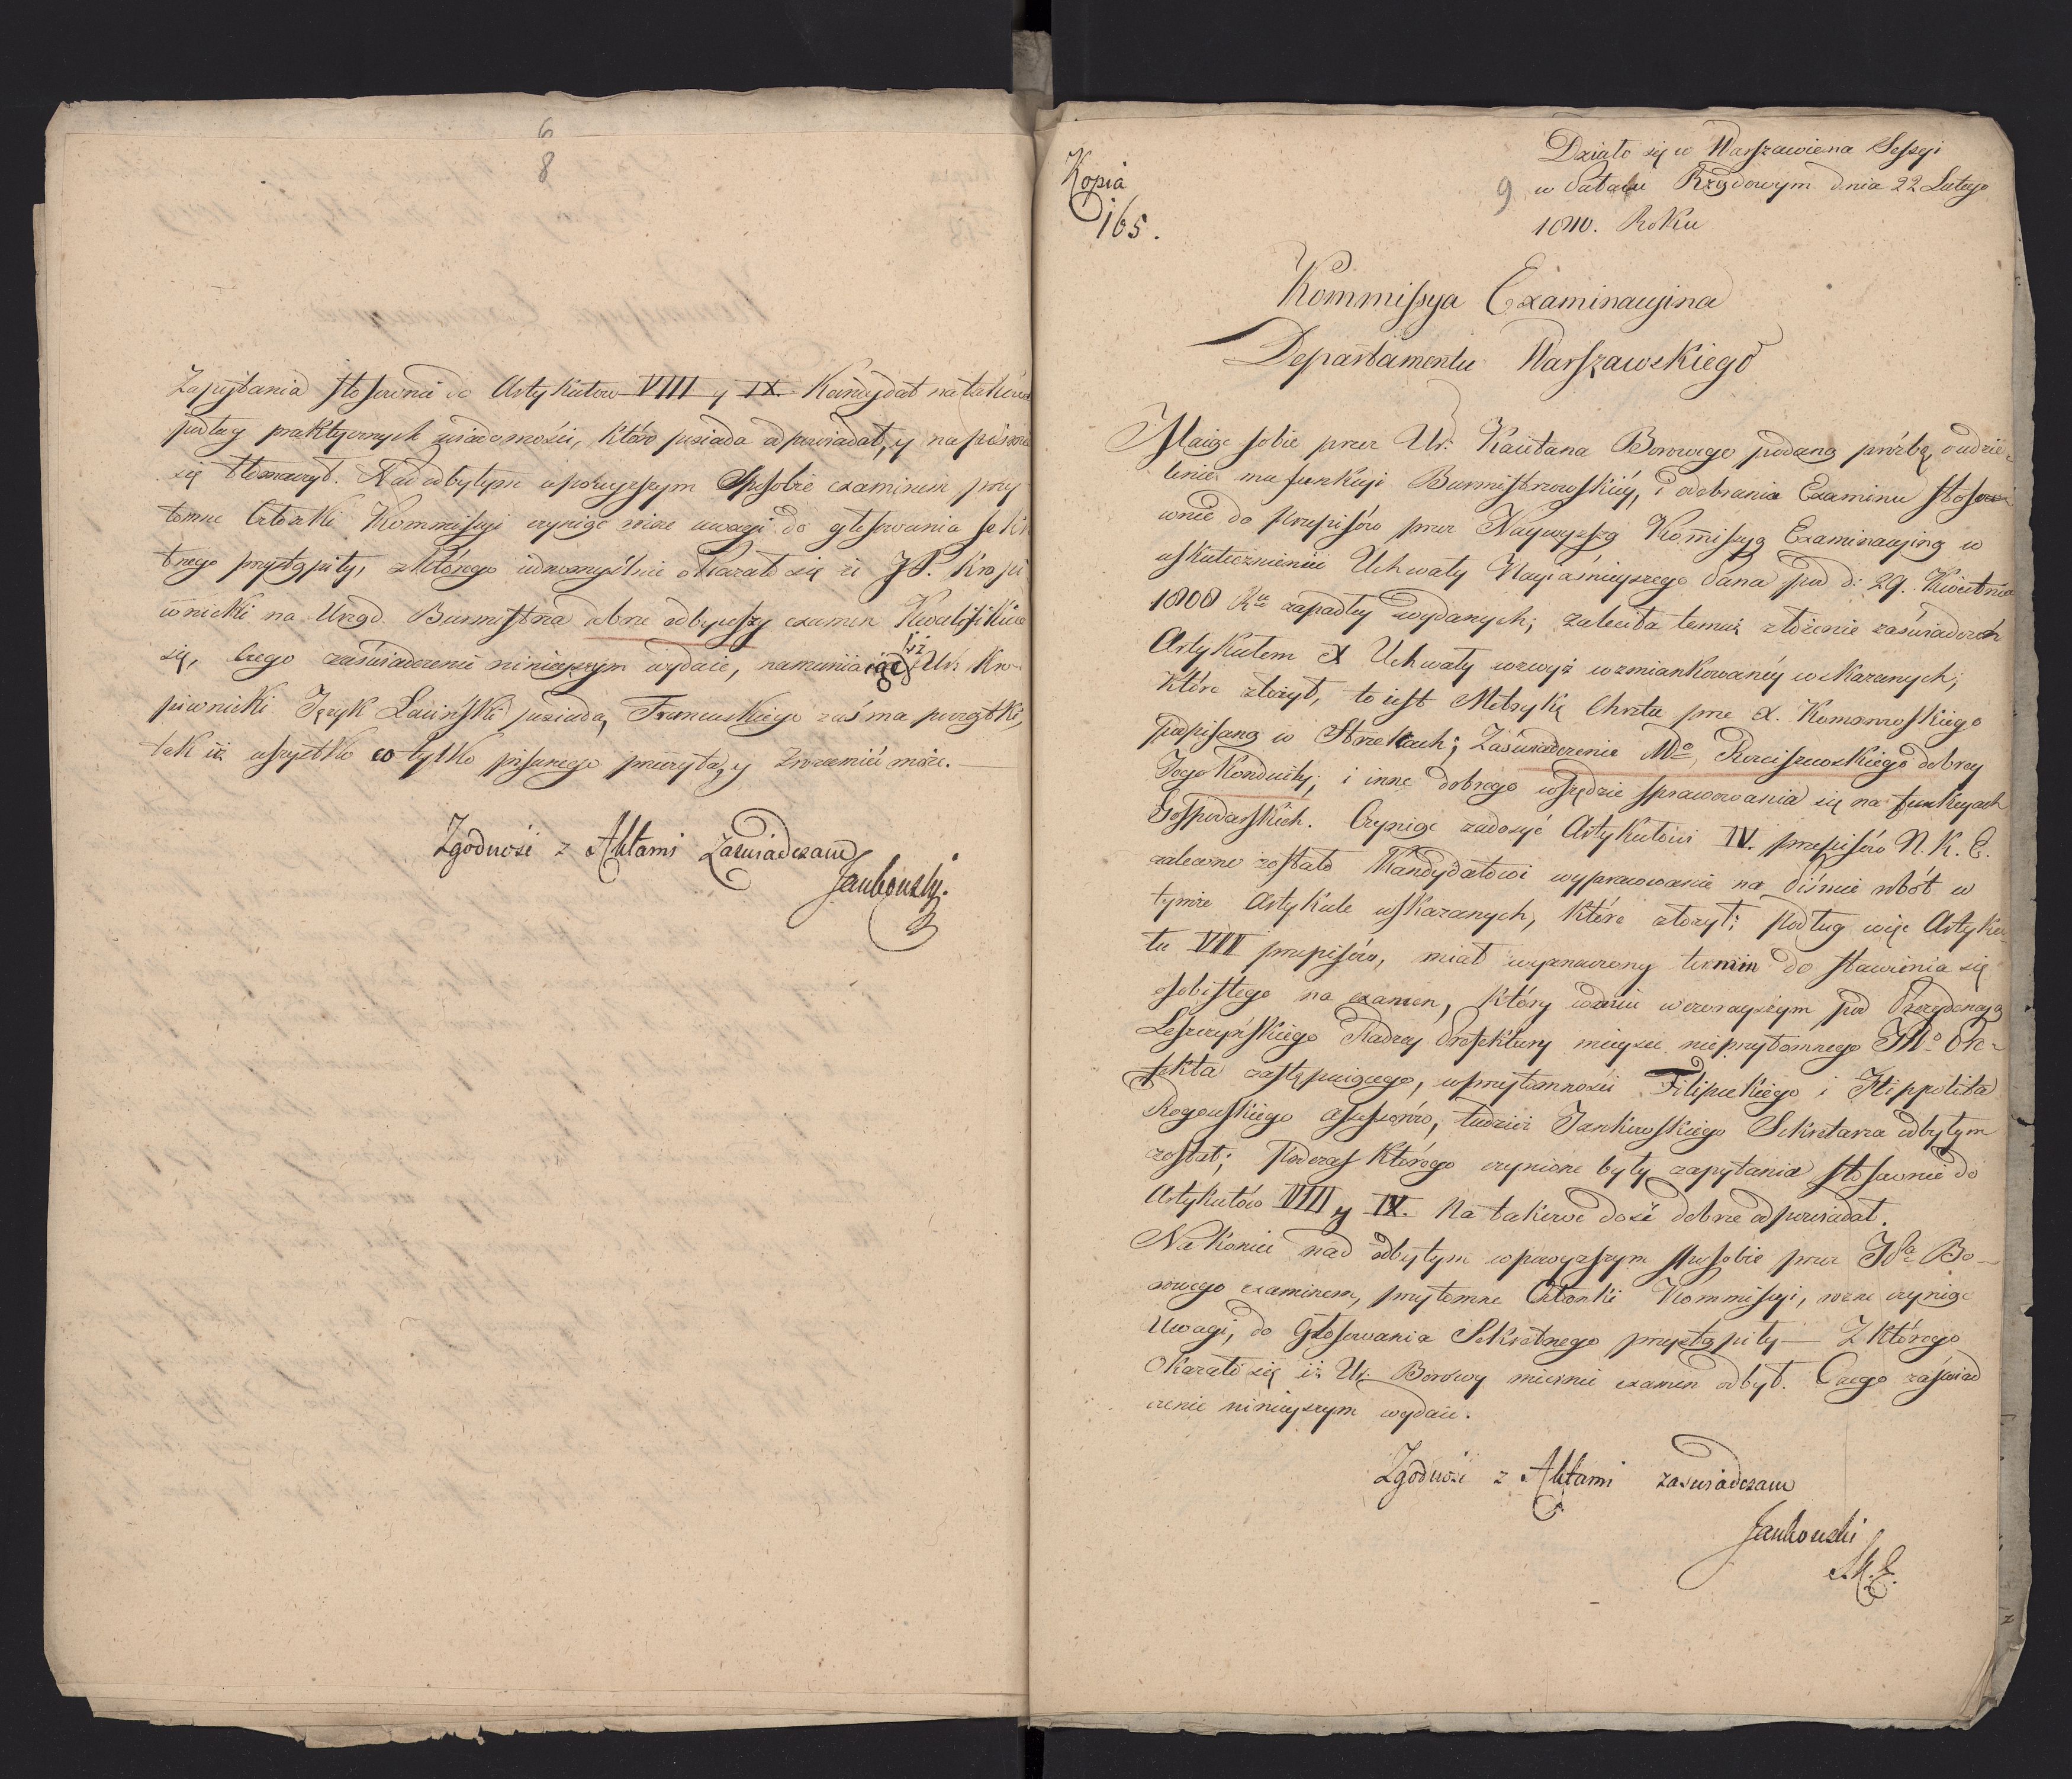 6
8
Zapytania stosownie do Artykułow VIII y IX. Kandydat na takowe
podług praktycznych wiadomości, które posiada odpowiadał, y na piśmie
się tłomaczył. Nad odbytym w powyższym sposobie examinem przy
tomne Członki Kommissyi czyniąc różne uwagi do głosowania sekre
tnego przystąpiły, z którego iednomyślnie okazało się że JP. Kropi
wnicki na Urząd Burmistrza dobrze odbywszy examen Kwalifikuie
się, czego zaświadczenie ninieyszym wydaie, namieniaiąc iż Ur. Kro-
piwnicki Język Łaciński posiada, Francuskiego zaś ma początki,
tak iż wszystko co tylko pisanego przeczyta, y zrozumieć może.
Zgodność z Aktami Zaświadczam
Jankowski.
Kopia
165.
9
Działo się w Warszawie na Sessyi
w Pałacu Rządowym dnia 22 Lutego
1810. Roku
Kommissya Examinacyina
Departamentu Warszawskiego
Maiąc sobie przez Ur. Kaietana Borowego podaną prózbę o udzie-
lenie mu funkcyi Burmistrzowskiéy, i odebrania Examinu stoso-
wnie do przepisów przez Naywyższą Kommissyą Examinacyiną w
uskutecznieniu Uchwały Nayiaśnieyszego Pana pod d: 29. Kwietnia
1808 Ru zapadłey wydanych; zaleciła temuż złożenie zaświadczeń
Artykułem X Uchwały wzwyż wzmiankowanéy wskazanych;
które złożył, to iest Metrykę Chrztu prze X. Komorowskiego
podpisaną w Strzelcach; Zaświadczenie Wo Rociszewskiego dobrey
Jego Konduity; i inne dobrego wszędzie sprawowania się na funkcyach
Gospodarskich. Czyniąc zadosyć Artykułowi IV. przepisów N. K. E.
zalecone zostało Kandydatowi wypracowanie na piśmie robót w
tymże Artykule wskazanych, które złożył; Podług więc Artyku-
łu VII przepisów, miał wyznaczony termin do stawienia się
osobistego na examen, który w dniu wczorayszym pod Prezydencyą
Leszczyńskiego Radzcy Prefektury mieysce nieprzytomnego JWo Pre-
fekta zastępuiącego, w przytomności Filipeckiego i Hippolita
Rogowskiego assessorów, tudzież Jankowskiego Sekretarza odbytym
został; Podczas którego czynione były zapytania stosownie do
Artykułów VIII y IX. Na takowe dość dobrze odpowiadał.
Nakoniec nad odbytym w powyższym sposobie przez JPa Bo-
rowego examinem, przytomne Członki Kommissyi, różne czyniąc
Uwagi, do Głosowania Sekretnego przystąpiły — Z którego
Okazało się iż Ur. Borowy miernie examen odbył. Czego zaświad
czenie ninieyszym wydaie.
Zgodność z Aktami zaświadczam
Jankowski
S.K.E.